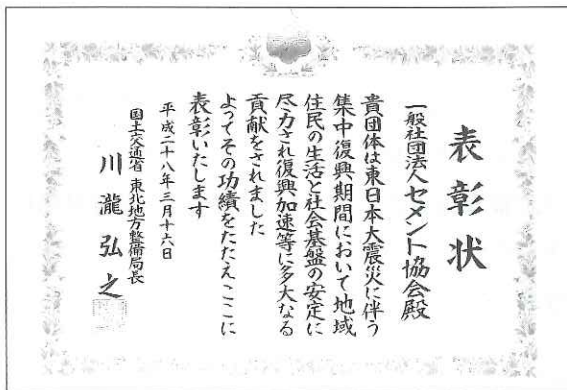 表彰状
一般社団法人セメント協会殿
貴団体は東日本大震災に伴う
集中復興期間において地域
住民の生活と社会基盤の安定に
尽力され復興加速等に多大なる
貢献をされました
よってその功績をたたえここに
表彰いたします
平成二十八年三月十六日
国土交通省 東北地方整備局長
川瀧弘之